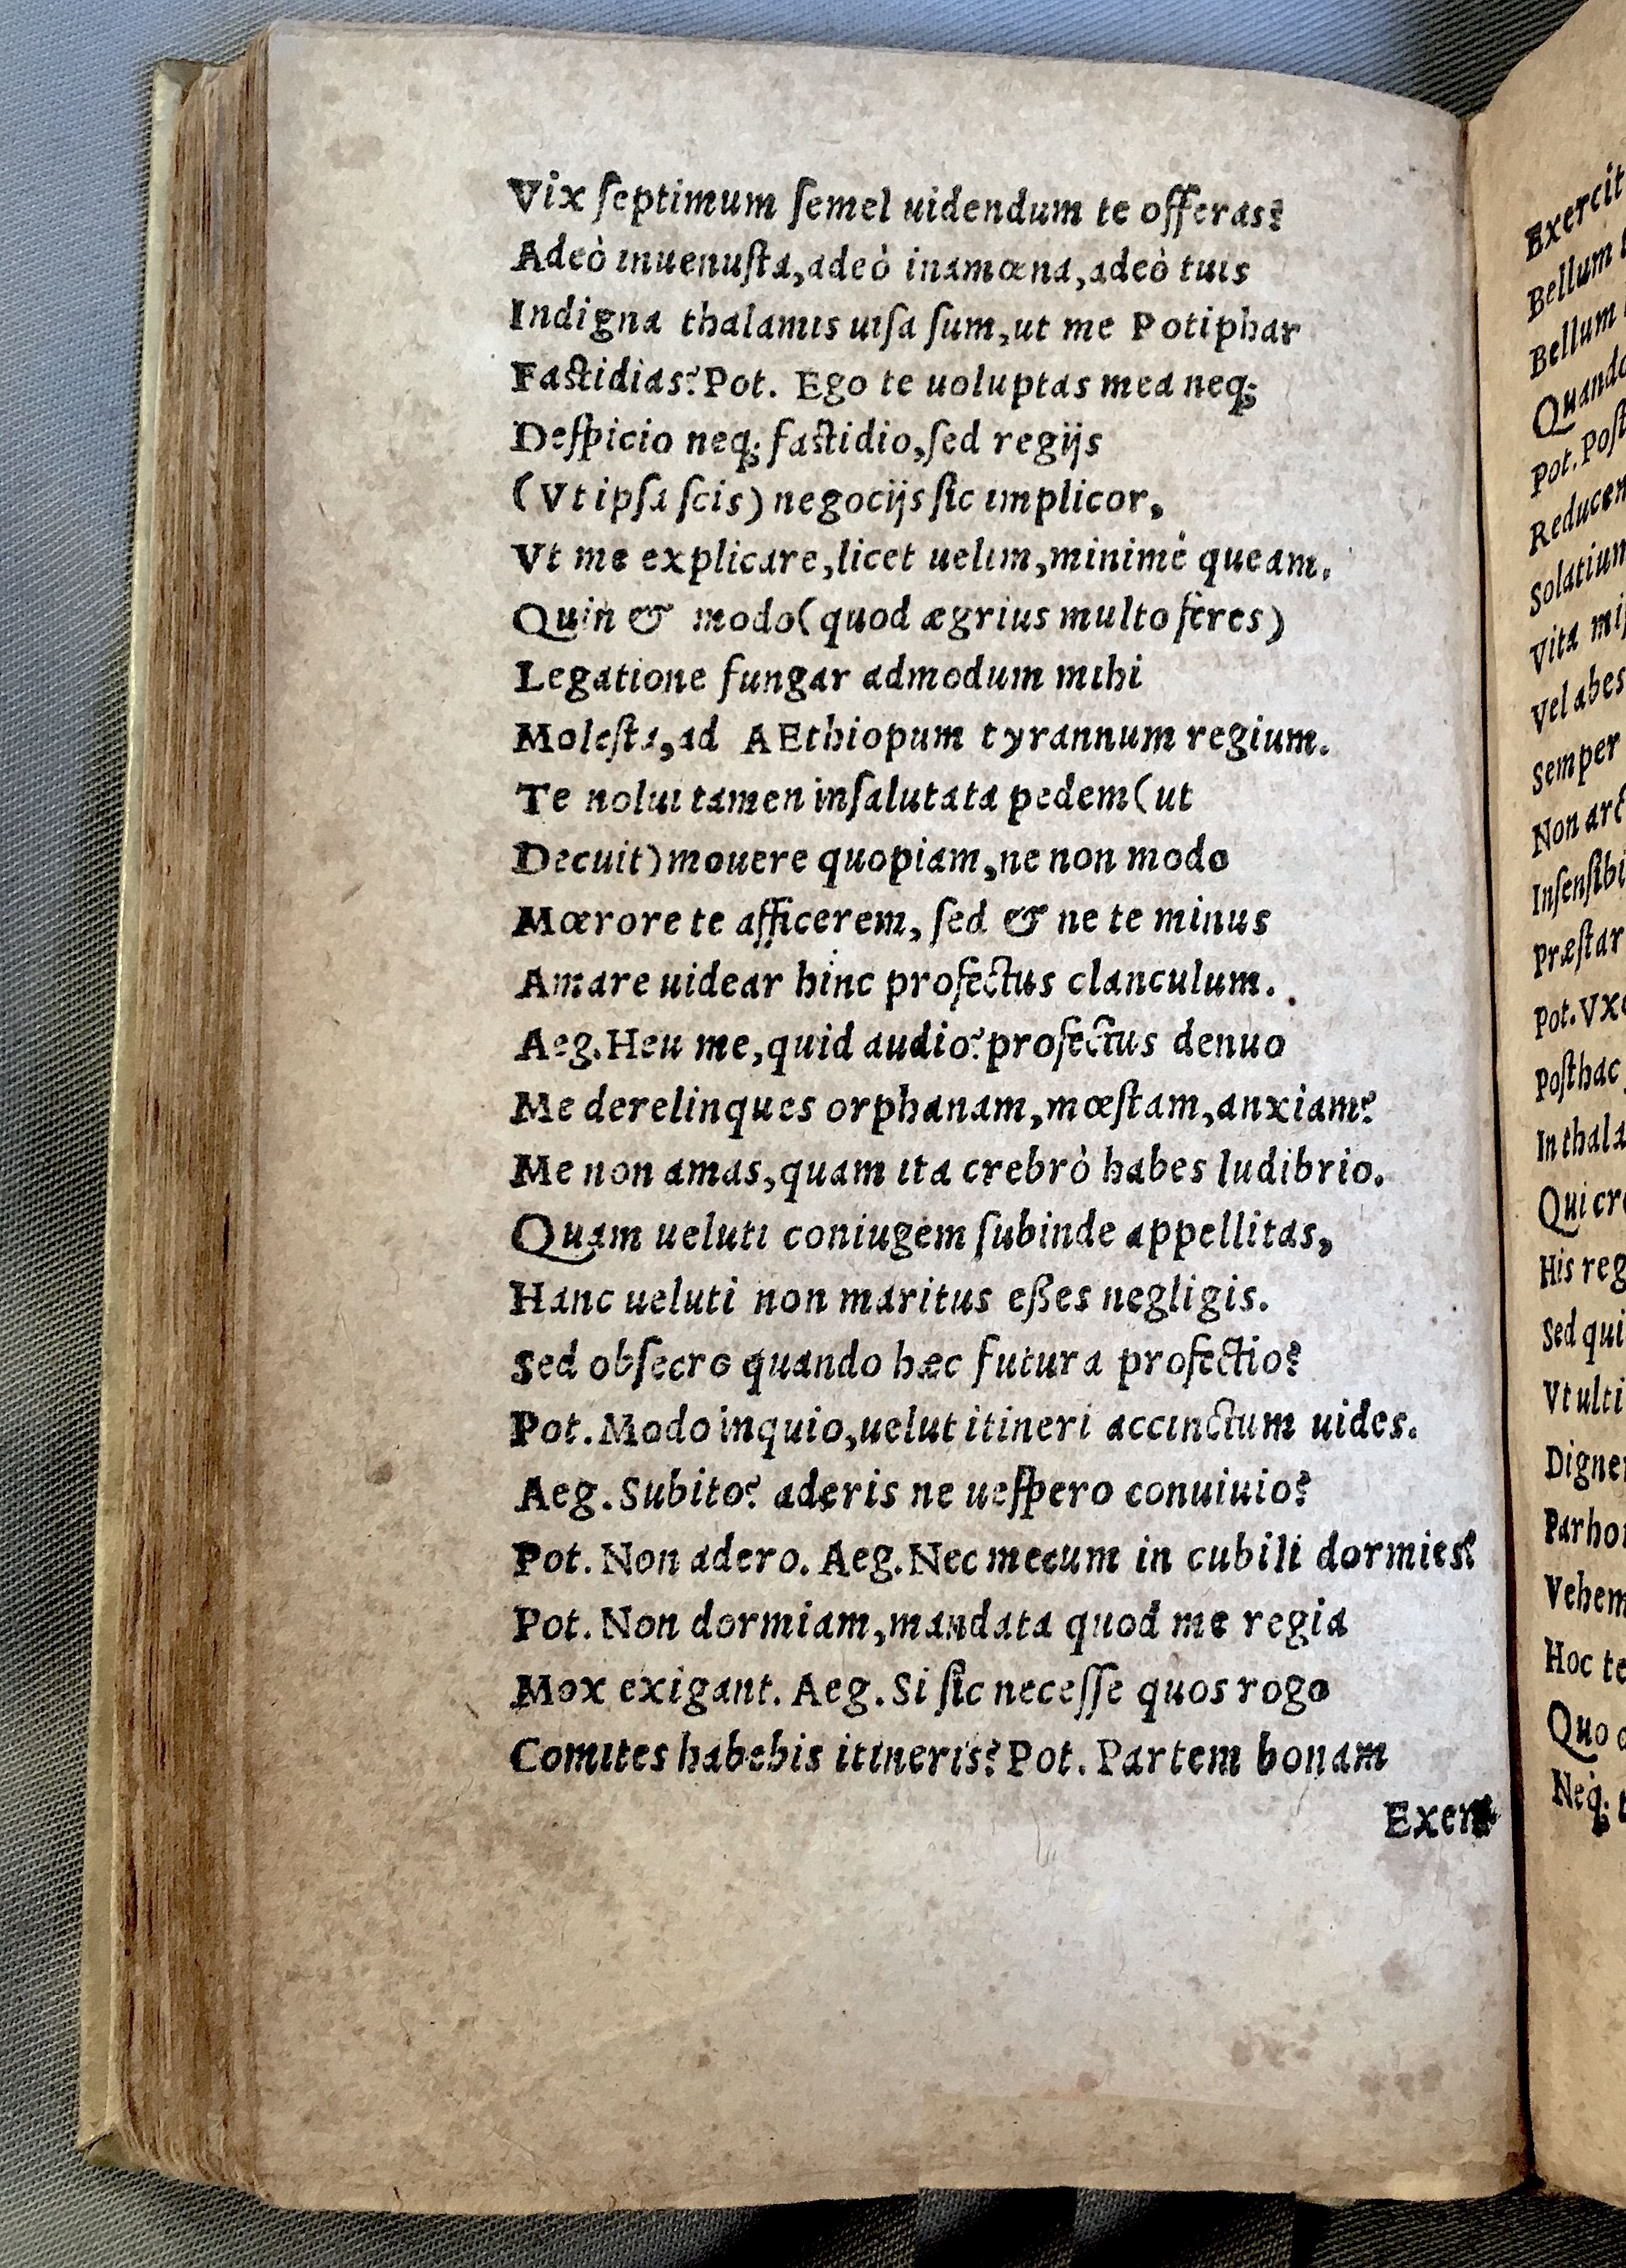 Vix ſeptimum ſemel uidendum te offeras?
Adeò inuenuſta, adeò inamœna, adeò tuis
Indigna thalamis uiſa ſum, ut me Potiphar
Faſtidias? Pot. Ego te uoluptas mea neq;
Deſpicio neq; faſtidio, ſed regijs
(Vt ipſa ſcis) negocijs ſic implicor,
Vt me explicare, licet uelim, minimè queam.
Quin & modo (quod ægrius multo feres)
Legatione fungar admodum mihi
Moleſta, ad AEthiopum tyrannum regium.
Te nolui tamen inſalutata pedem (ut
Decuit) mouere quopiam, ne non modo
Mœrore te afficerem, ſed & ne te minus
Amare uidear hinc profectus clanculum.
Aeg. Heu me, quid audio? profectus denuo
Me derelinques orphanam, mœſtam, anxiam?
Me non amas, quam ita crebrò habes ludibrio.
Quam ueluti coniugem ſubinde appellitas,
Hanc ueluti non maritus eßes negligis.
Sed obſecro quando hæc futura profectio?
Pot. Modo inquio, uelut itineri accinctum uides.
Aeg. Subito? aderis ne ueſpero conuiuio?
Pot. Non adero. Aeg. Nec mecum in cubili dormies?
Pot. Non dormiam, mandata quod me regia
Mox exigant. Aeg. Si ſic neceſſe quos rogo
Comites habebis itineris? Pot. Partem bonam
Exercit
Bellum
Bellum
Quando
Pot. Poſt
Reducen
Solatium
Vita
Vel abes
Semper
Non
Inſenſibi
Præſtar
Pot. Vxo
Poſthac
In thala
Qui cre
His reg
Sed qui
Vt ulti
Digner
Par hon
Vehem
Hoc te
Quo
Neq;